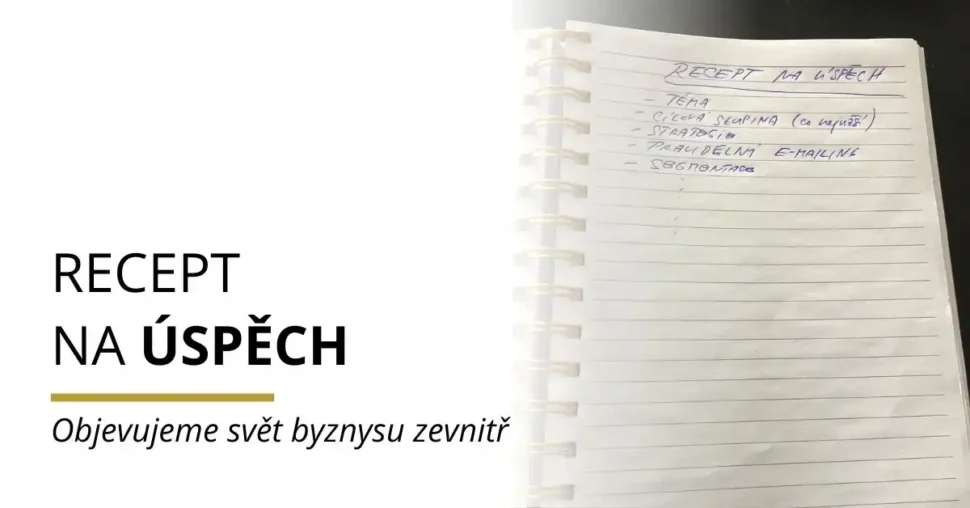 RECEPT
NA ÚSPĚCH
Objevujeme svět byznysu zevnitř
RECEPT NA ÚSPĚCH
- TÉMA
- CÍLOVÁ SKUPINA (co nejužší)
- STRATEGIE
- PRAVIDELNÍ E-MAILING
- SEGMENTACE